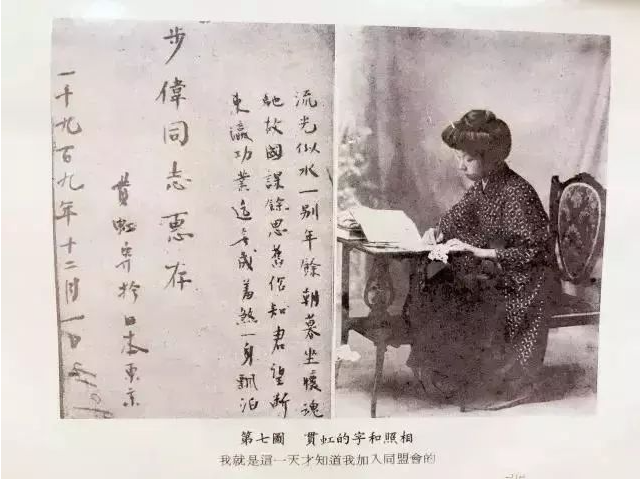 流光似水一別年餘朝暮坐懷魂
馳故國課餘思舊俗知君望斷
東瀛功業迄無成羞煞一身飄泊
步偉同志惠存
貫虹寄於日本東京
一千九百九年十二月一日
第七圖 貫虹的字和照相
我就是這一天才知道我加入同盟會的